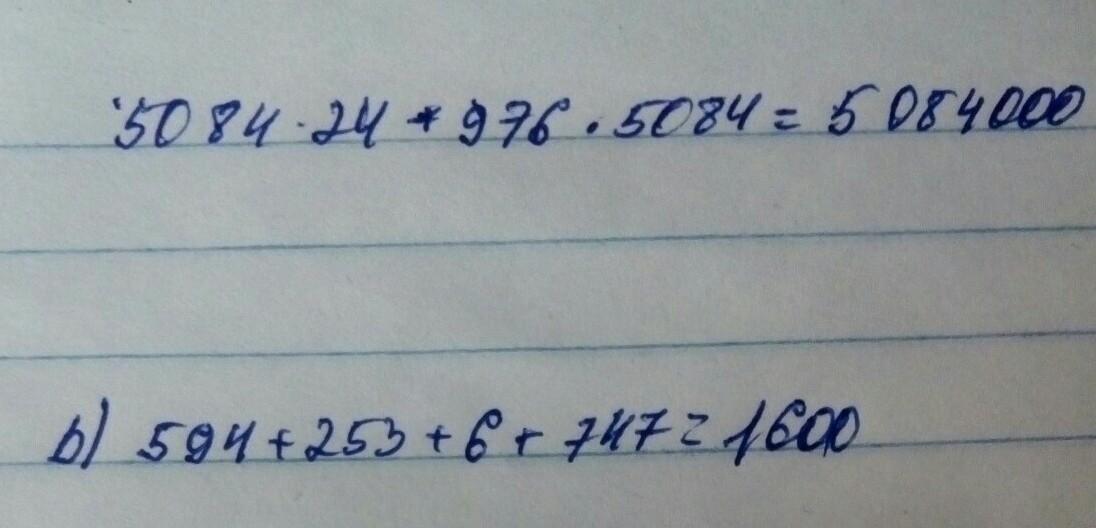 5084·24+976·5084=5084000
b) 594+253+6+747=1600